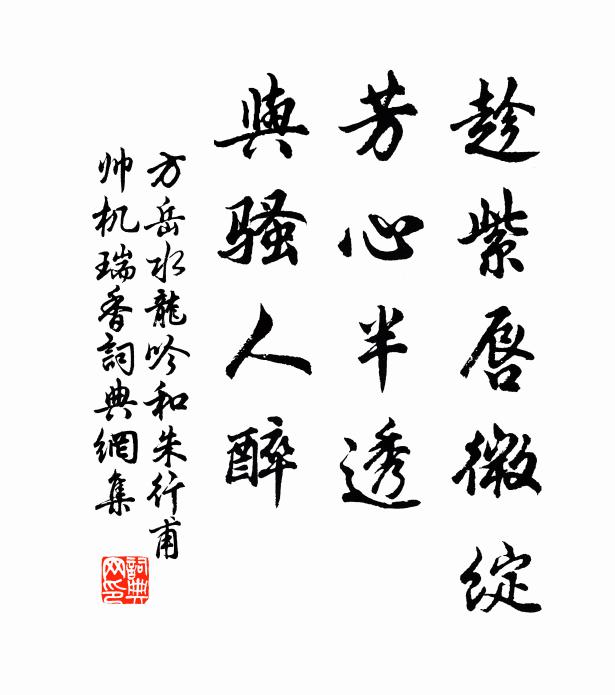 趁紫唇微綻
芳心半透
與騷人醉
方岳水龍吟和朱行甫
帅机瑞香詞典網集
詞典
网印